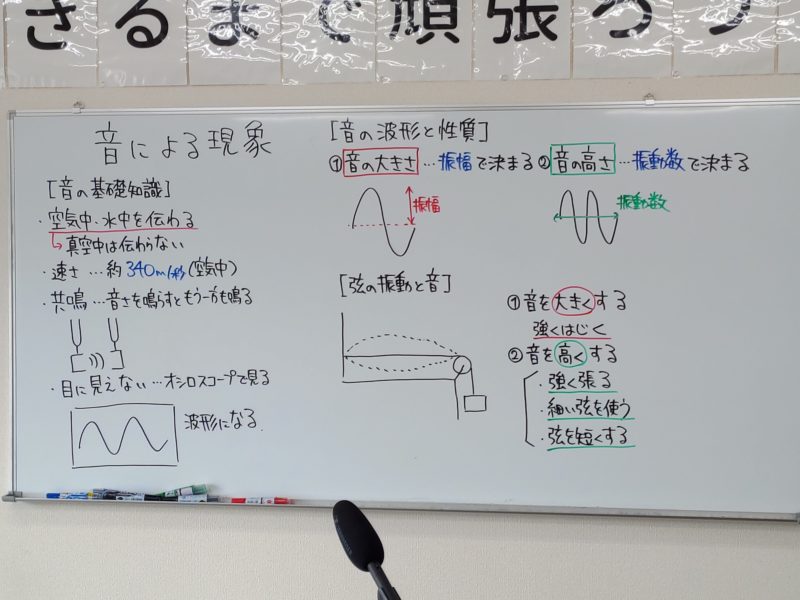 きるまで頑張ろう
音による現象
[音の基礎知識]
・空気中・水中を伝わる
↳真空中は伝わらない
・速さ…約340m/秒(空気中)
・共鳴…音さを鳴らすともう一方も鳴る
・目に見えない…オシロスコープで見る
波形になる.
[音の波形と性質]
①音の大きさ…振幅で決まる
振幅
②音の高さ…振動数で決まる
振動数
[弦の振動と音]
①音を大きくする
強くはじく
②音を高くする
・強く張る
・細い弦を使う
・弦を短くする